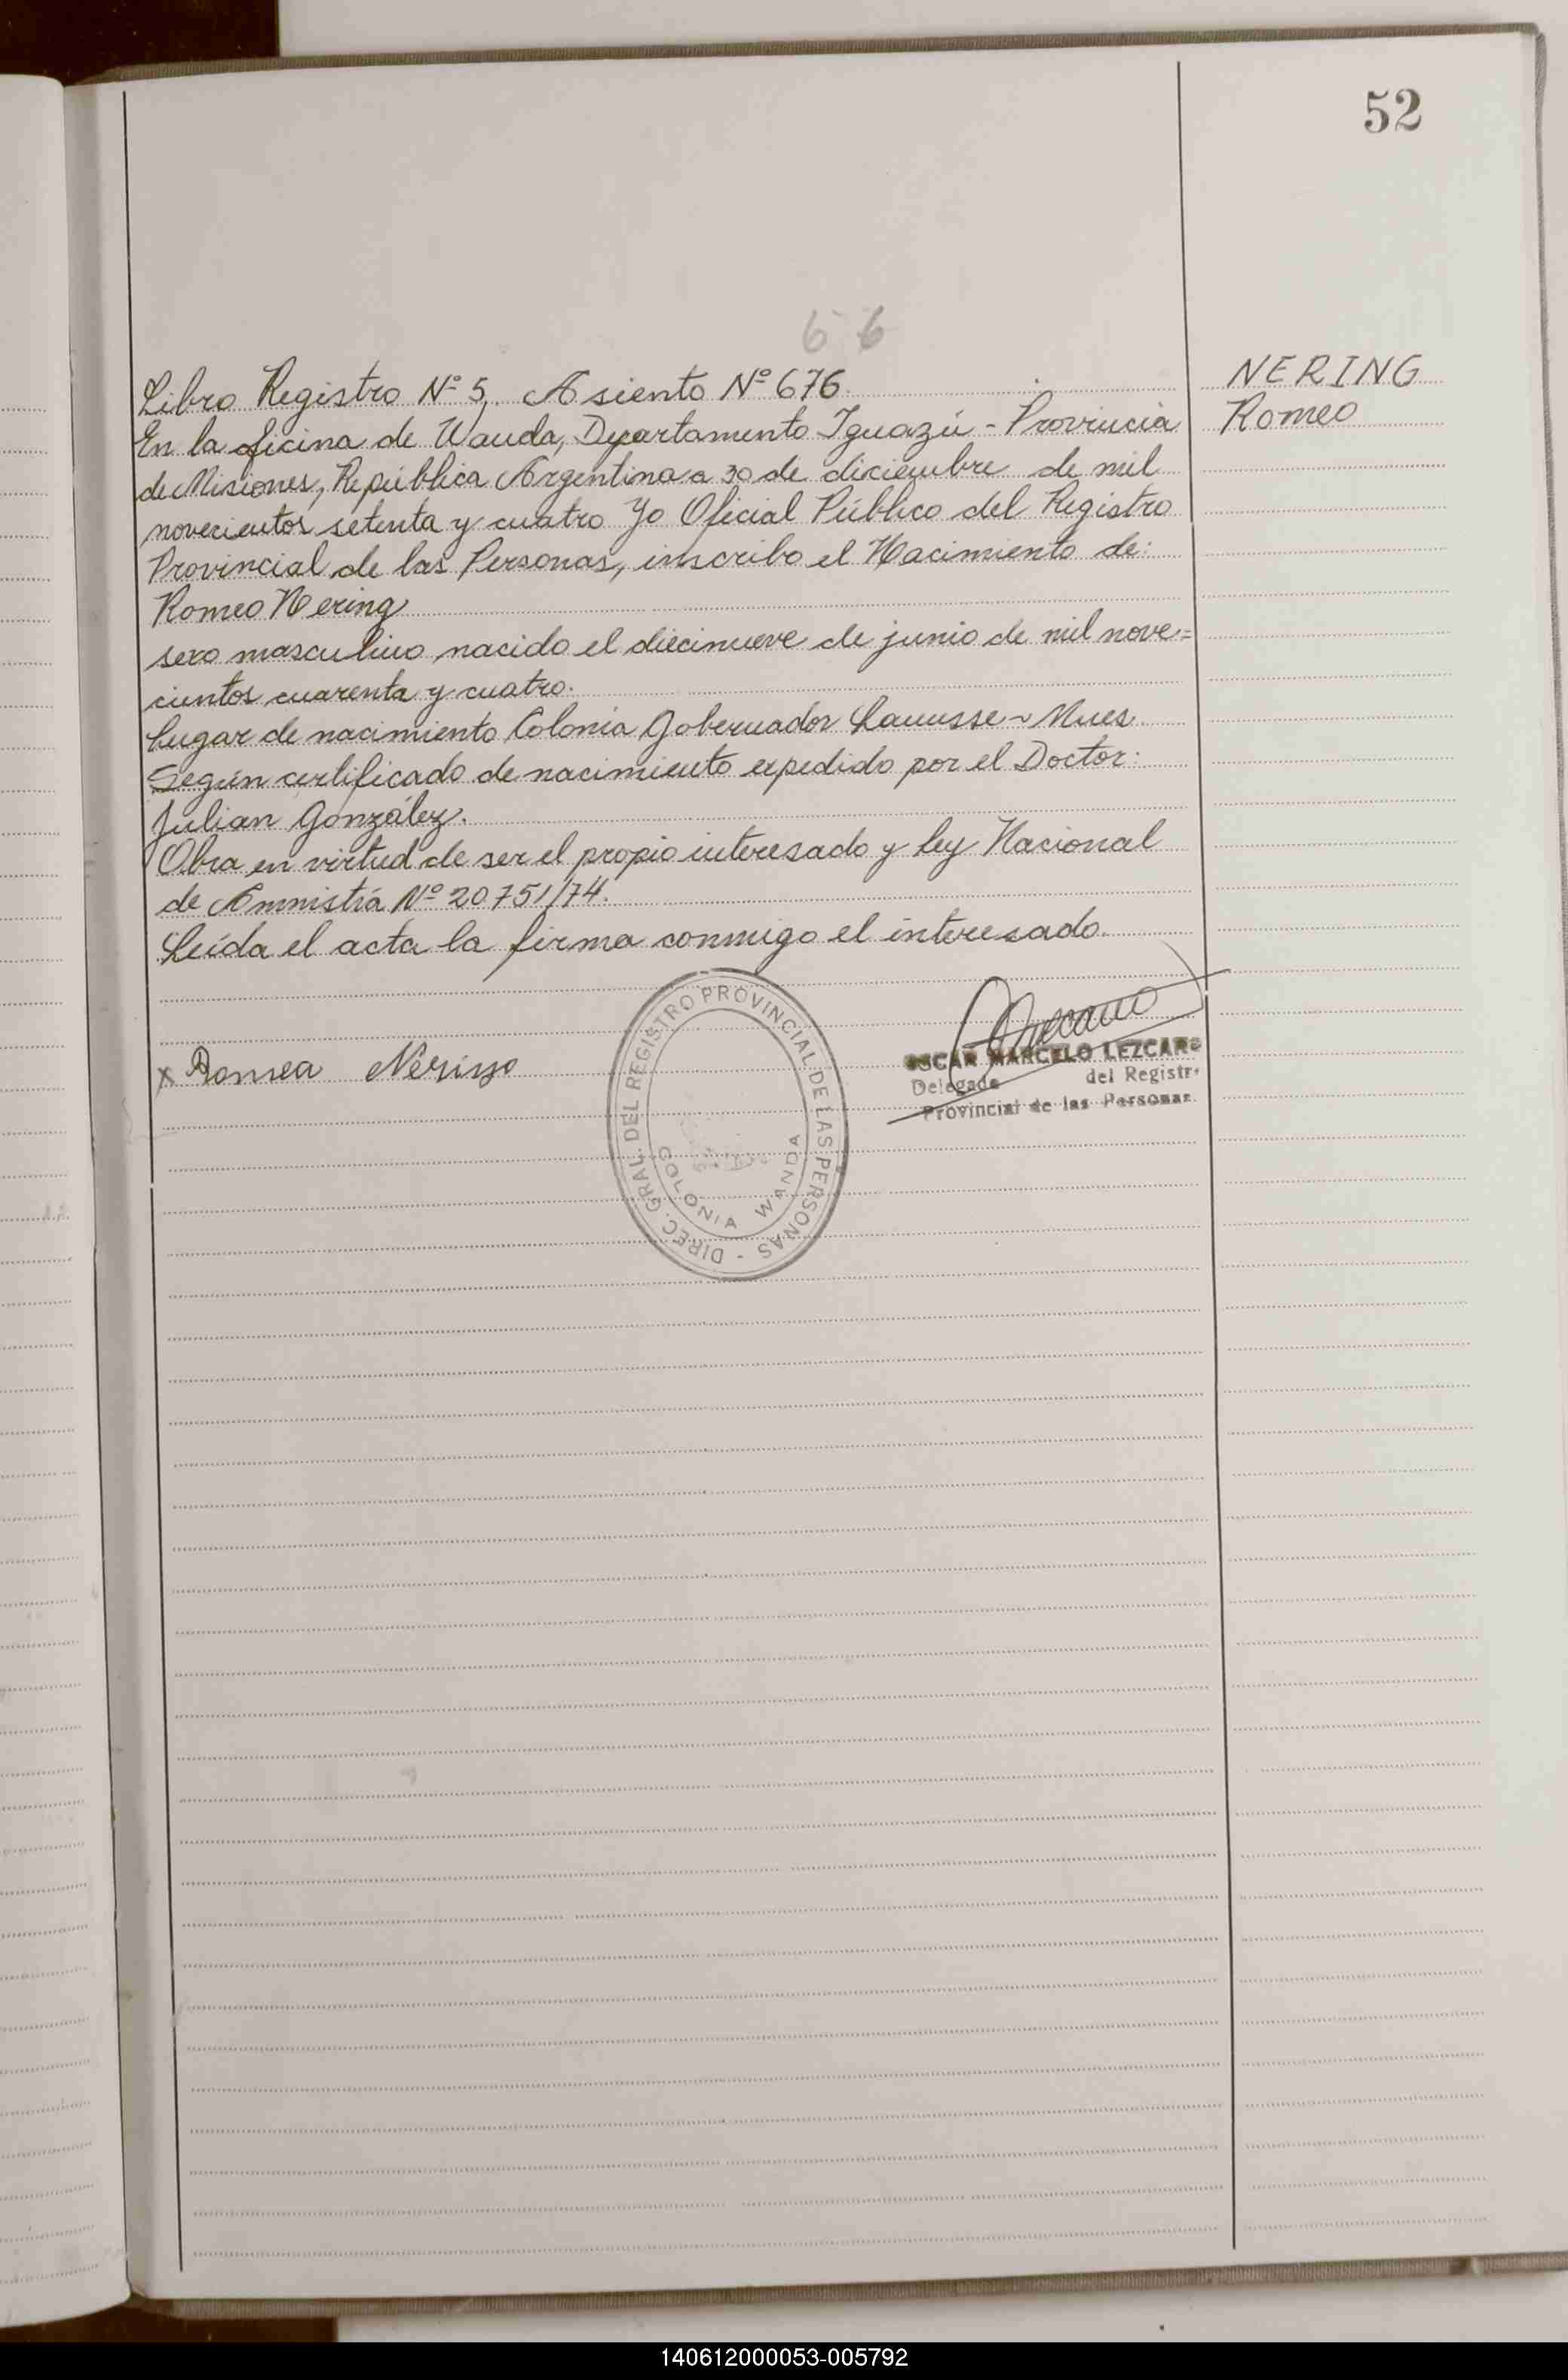 52
6 6
Libro Registro Nº 5. Asiento Nº 676.
NERING
Romeo
En la oficina de Wanda, Departamento Iguazú - Provincia
de Misiones, República Argentina a 30 de diciembre de mil
novecientos setenta y cuatro Yo Oficial Público del Registro
Provincial de las Personas, inscribo el Nacimiento de:
Romeo Nering
sexo masculino nacido el diecinueve de junio de mil nove=
cientos cuarenta y cuatro.
Lugar de nacimiento Colonia Gobernador Lanusse - Mnes
Según certificado de nacimiento expedido por el Doctor:
Julian González.
Obra en virtud de ser el propio interesado y ley Nacional
de Amnistía Nº 20751/74.
Leída el acta la firma conmigo el interesado.
x Romeo Nering
DIREC. GRAL. DEL REGISTRO PROVINCIAL DE LAS PERSONAS -
COLONIA WANDA
OSCAR MARCELO LEZCANO
Delegado del Registro
Provincial de las Personas
140612000053-005792